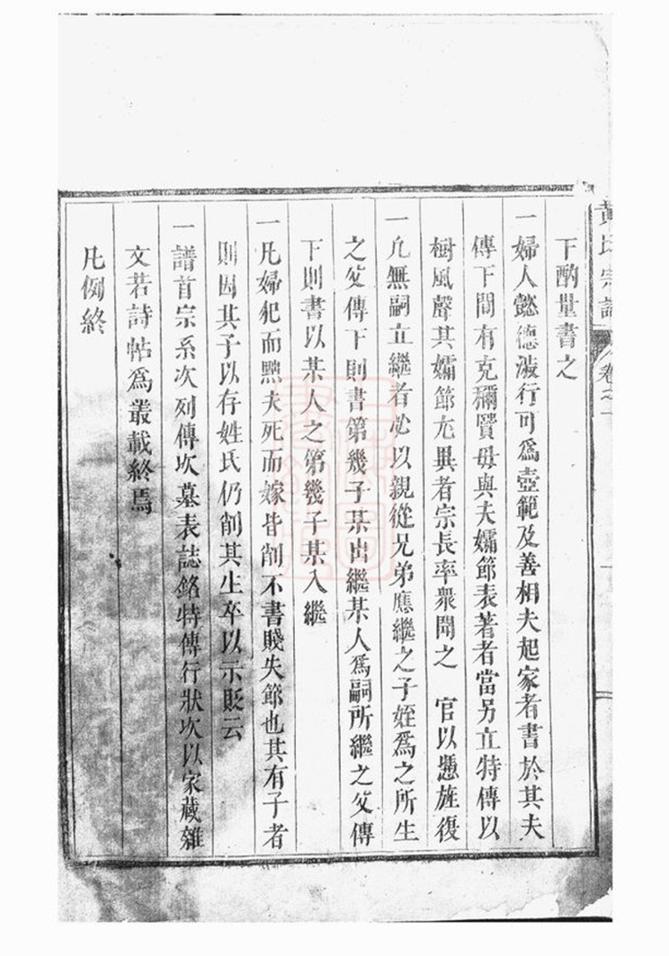 黄氏宗譜 卷之一
下酌量書之
一婦人懿德淑行可爲壼範及善相夫起家者書於其夫
傳下間有克稱賢母與夫孀節表著者當另立特傳以
樹風聲其孀節尤異者宗長率衆聞之 官以懸旌復
一凢無嗣立繼者必以親從兄弟應繼之子姪爲之所生
之父傳下則書第幾子某出繼某人爲嗣所繼之父傳
下則書以某人之第幾子某入繼
一凢婦犯而黜夫死而嫁皆削不書賤失節也其有子者
則因其子以存姓氏仍削其生卒以示貶云
一譜首宗系次列傳次墓表誌銘特傳行狀次以家藏雜
文若詩帖爲叢載終焉
凢例終